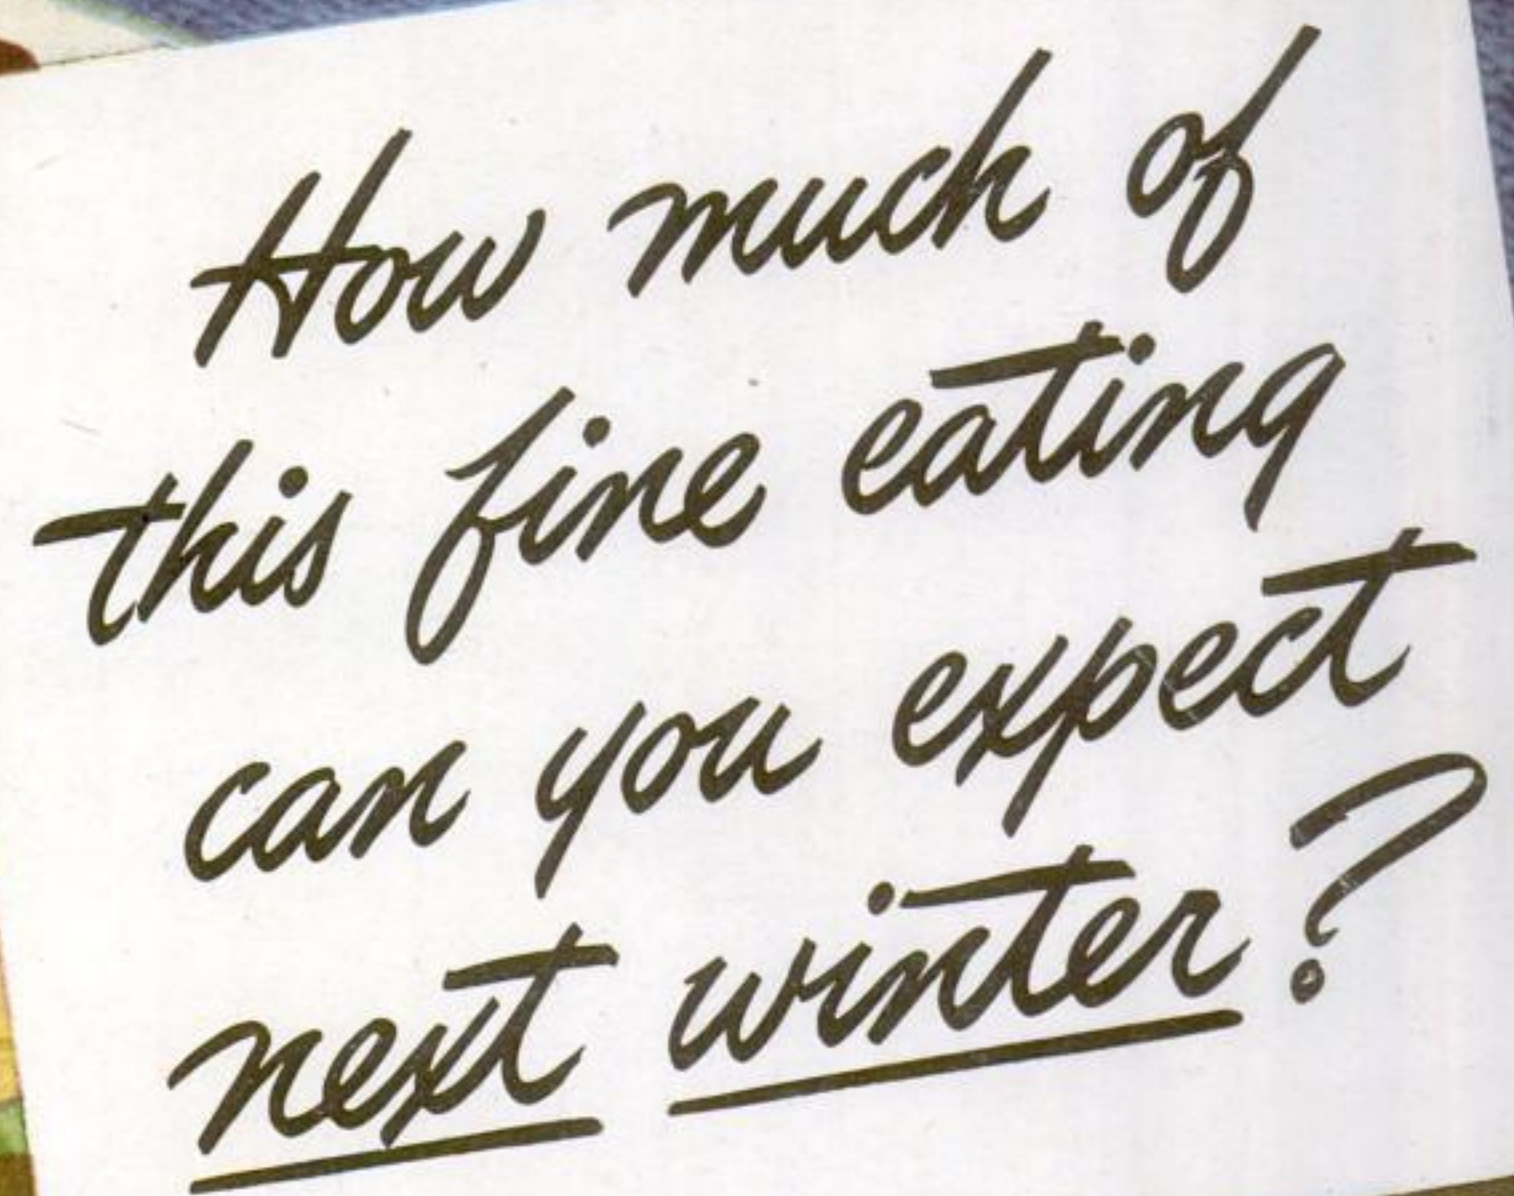 How much of
this fine eating
can you expect
next winter?